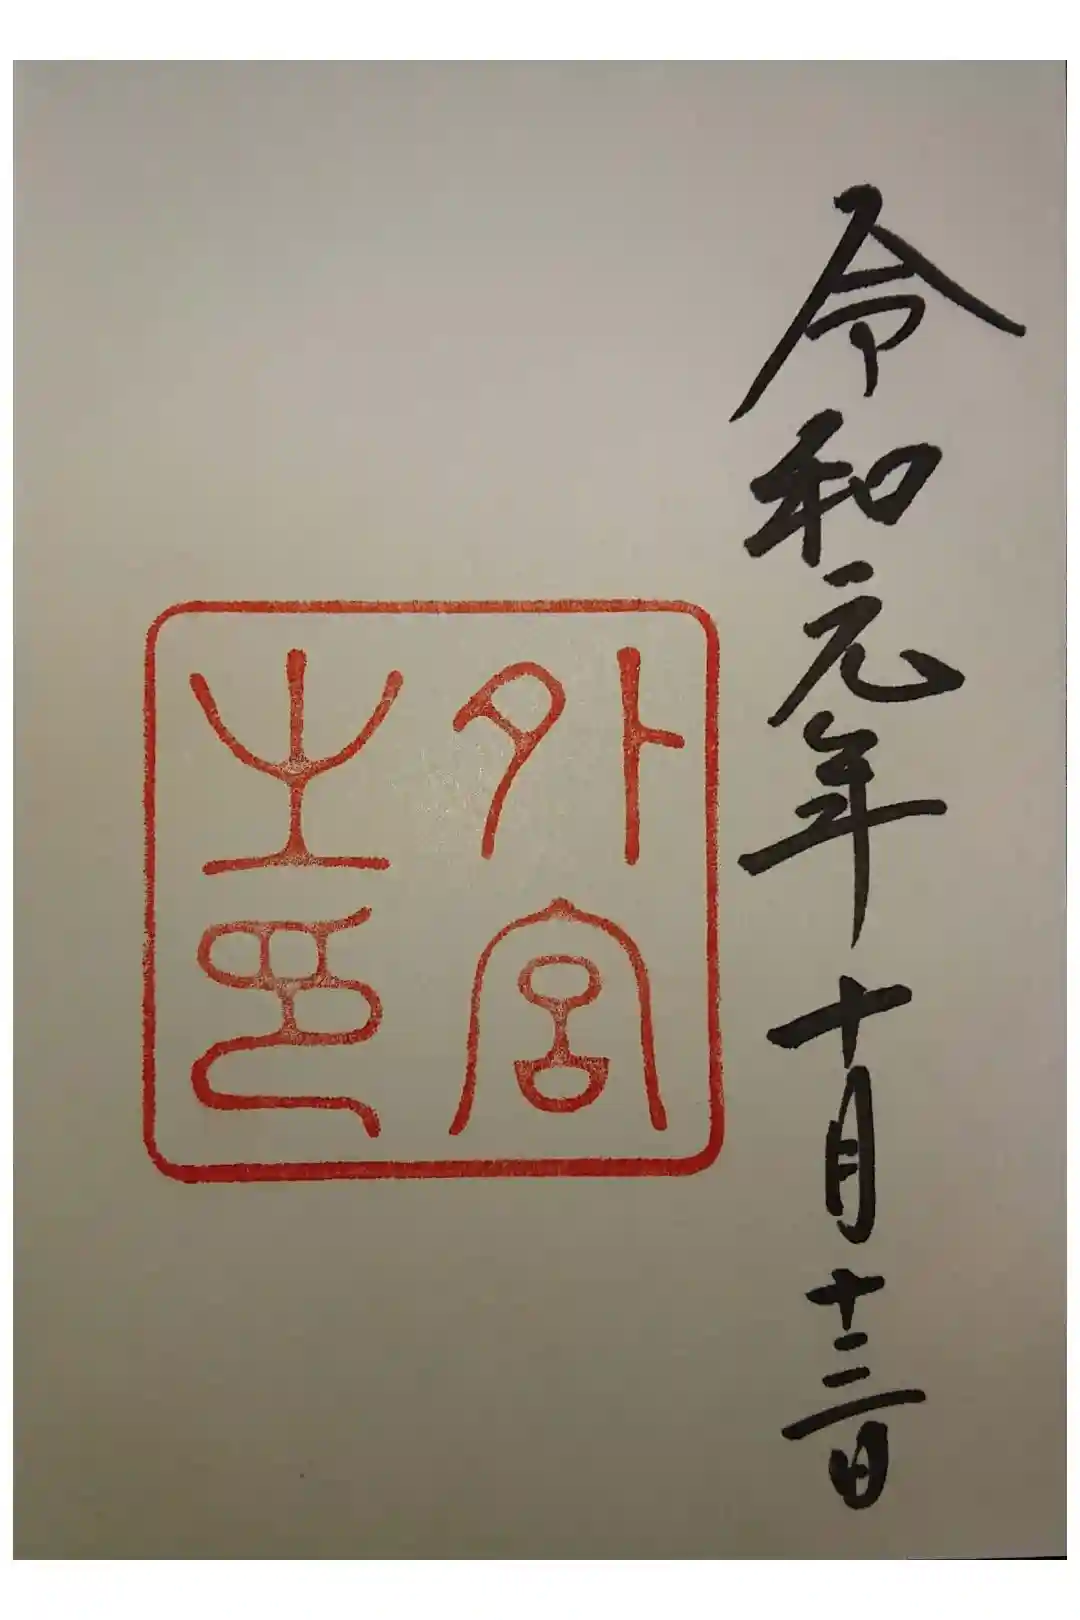 令和元年十月十三日
外宮之印